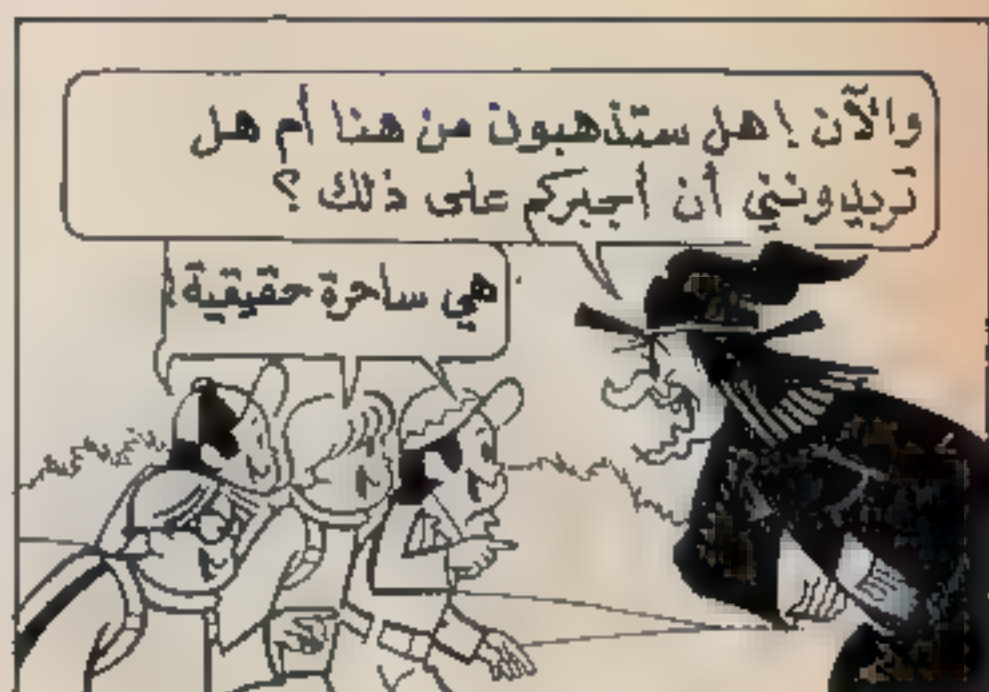 والآن ! هل ستذهبون من هنا أم هل
تريدونني أن أجبركم على ذلك ؟
هي ساحرة حقيقية !